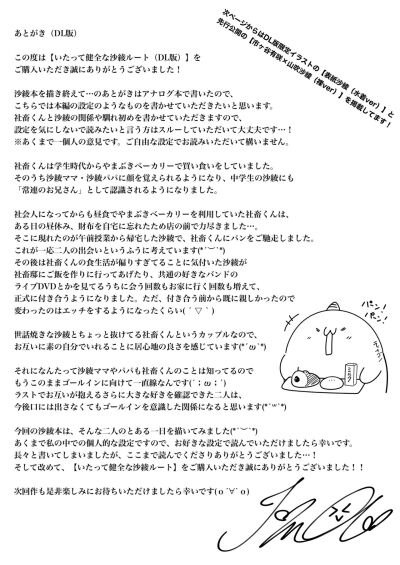 あとがき（DL版）
次ページからはDL版限定イラストの【表紙沙綾（水着ver）】と
先行公開の【市ヶ谷有咲×山吹沙綾（裸ver）】を掲載してます！
この度は【いたって健全な沙綾ルート（DL版）】を
ご購入いただき誠にありがとうございます！
沙綾本を描き終えて…のあとがきはアナログ本で書いたので、
こちらでは本編の設定のようなものを書かせていただきたいと思います。
社畜くんと沙綾の関係や馴れ初めを書かせていただきますので、
設定を気にしないで読みたいと言う方はスルーしていただいて大丈夫です…！
※あくまで一個人の意見です。ご自由な設定でお読みいただいて構いません。
社畜くんは学生時代からやまぶきベーカリーで買い食いをしていました。
そのうち沙綾ママ・沙綾パパに顔を覚えられるようになり、中学生の沙綾にも
「常連のお兄さん」として認識されるようになりました。
社会人になってからも昼食でやまぶきベーカリーを利用していた社畜くんは、
ある日の昼休み、財布を自宅に忘れたため店の前で力尽きました…。
そこに現れたのが午前授業から帰宅した沙綾で、社畜くんにパンをご馳走しました。
これが一応二人の出会いというふうに考えています(*´︶`*)
その後は社畜くんの食生活が偏りすぎてることに気付いた沙綾が
社畜邸にご飯を作りに行ってあげたり、共通の好きなバンドの
ライブDVDとかを見てるうちに会う回数もお家に行く回数も増えて、
正式に付き合うようになりました。ただ、付き合う前から既に親しかったので
変わったのはエッチをするようになったくらい(　´ ▽ `　)
世話焼きな沙綾とちょっと抜けてる社畜くんというカップルなので、
お互いに素の自分でいれることに居心地の良さを感じています(*´ω`*)
それになんたって沙綾ママやパパも社畜くんのことは知ってるので
もうこのままゴールインに向けて一直線なんです(´；ω；`)
ラストでお互いが抱えるさらに大きな好きを確認できた二人は、
今後口には出さなくてもゴールインを意識した関係になると思います(*´꒳`*)
今回の沙綾本は、そんな二人のとある一日を描いてみました(*´︶`*)
あくまで私の中での個人的な設定ですので、お好きな設定で読んでいただけましたら幸いです。
長々と書いてしまいましたが、ここまで読んでくださりありがとうございました…！
そして改めて、【いたって健全な沙綾ルート】をご購入いただき誠にありがとうございます！！
次回作も是非楽しみにお待ちいただけましたら幸いです(о´∀`о)
パン！
パン！